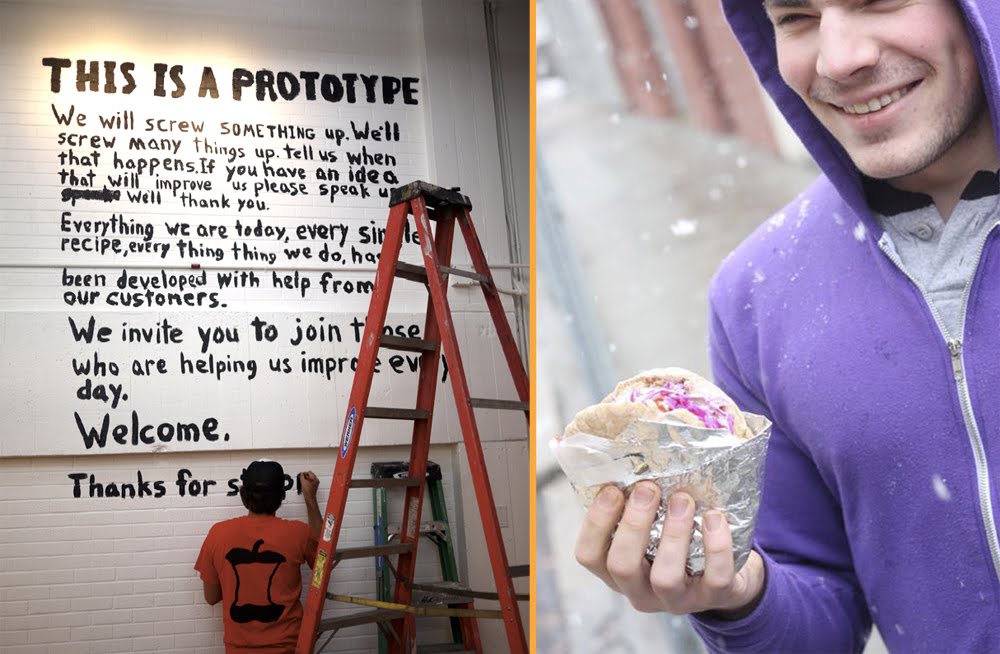 THIS IS A PROTOTYPE
We will screw SOMETHING up. We'll
screw many things up. tell us when
that happens. If you have an idea
that will improve us please speak up
Well thank you.
Everything we are today, every single
recipe, every thing thing we do, has
been developed with help from
our customers.
We invite you to join those
who are helping us improve every
day.
Welcome.
Thanks for